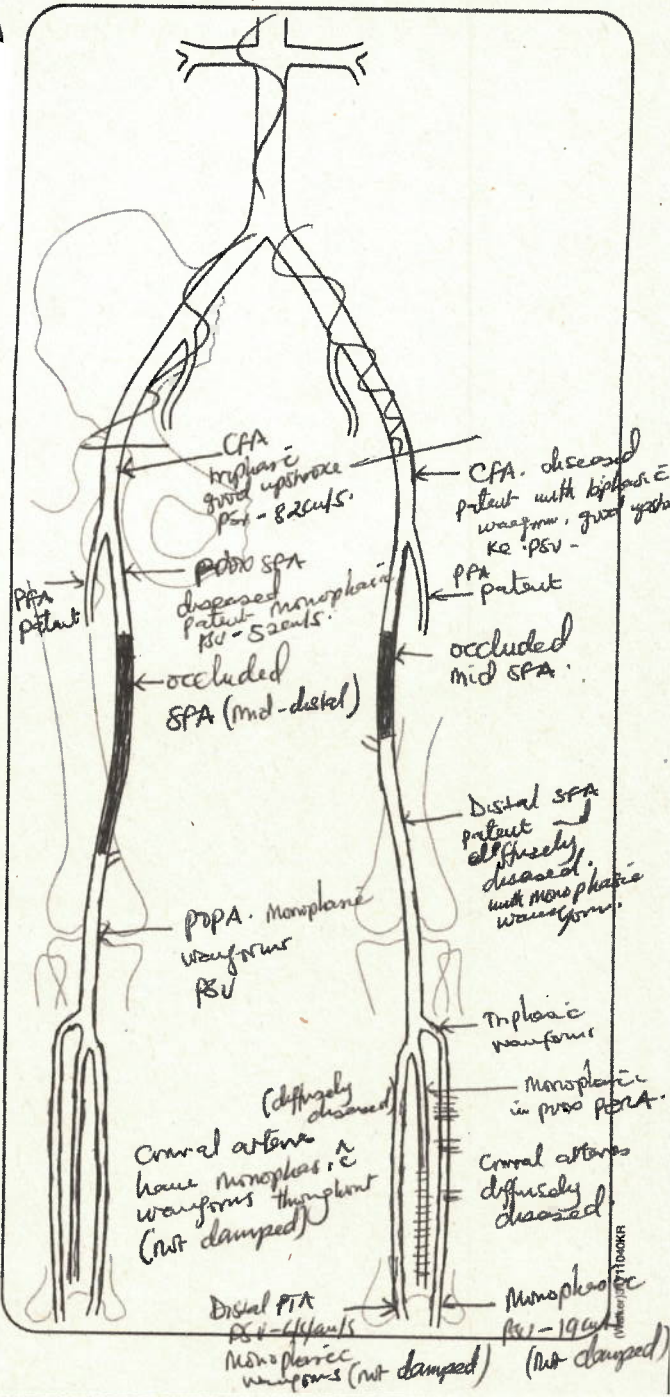 CFA
triphasic
good upstroke
PSV - 82cm/s.
CFA. diseased
patent with biphasic
waveform, good upstro
ke. PSV -
PFA
patent
prox SFA
diseased
patent monophasic
PSV - 52cm/s.
PFA
patent
occluded
SFA (mid-distal)
occluded
mid SFA.
Distal SFA
patent
diffusely
diseased.
with monophasic
waveform.
POPA. Monophasic
waveforms
PSV
Triphasic
waveforms
(diffusely
diseased)
Monophasic
in prox PERA.
Crural arteries
have monophasic
waveforms throughout
(not damped)
Crural arteries
diffusely
diseased.
Distal PTA
PSV - cm/s
Monophasic
waveforms (not damped)
Monophasic
PSV - 19cm/s
(not damped)